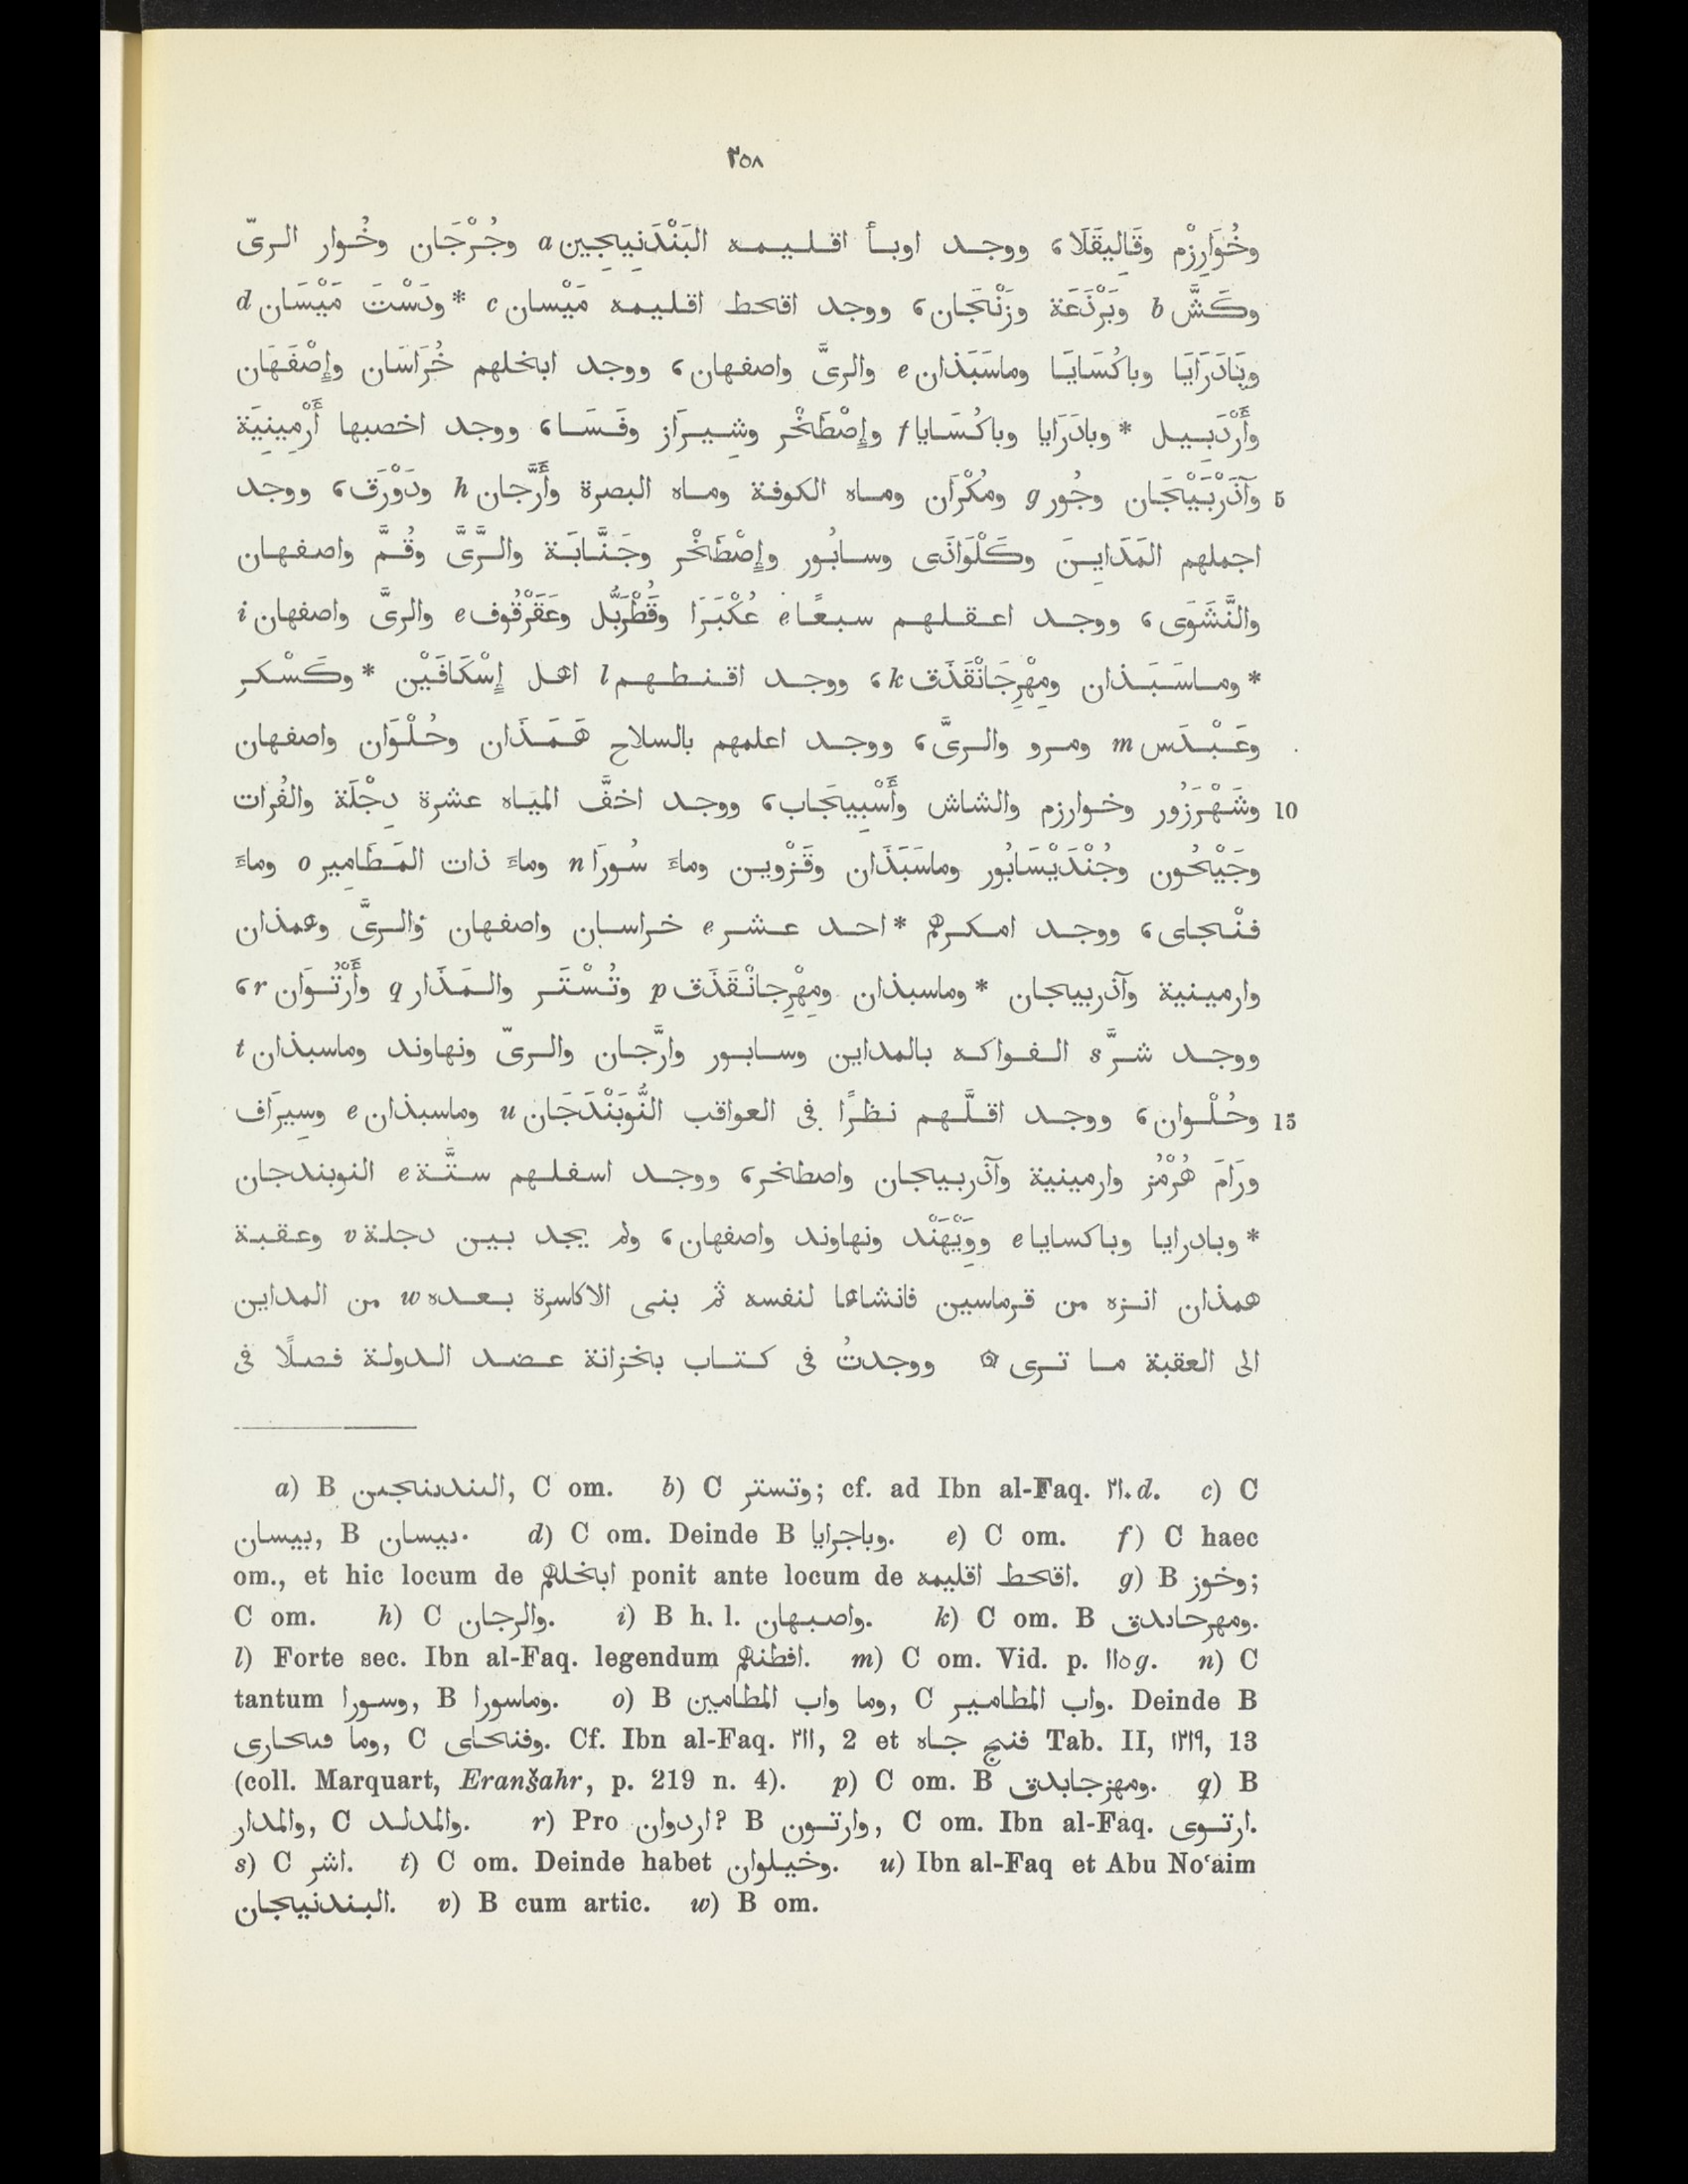 ٢٥٨
وخُوَارِزْم وقَالِيقَلَا، ووجد اوبأ اقليمه البَنْدَنِيجِين a وجُرْجَان وخُوار الرىّ
وكَشَّ b وبَرْذَعَة وزَنْجَان، ووجد اقحط اقليمه مَيْسان c * ودَسْتَ مَيْسَان d
وبَادَرَايَا وباكُسَايَا وماسَبَذان e والرىَّ واصفهان، ووجد ابخلهم خُرَاسَان وإِصْفَهَان
وأَرْدَبِيل * وبادَرَايا وباكُسَايا f وإِصْطَخْر وشِيرَاز وفَسَا، ووجد اخصبها أَرْمِينِيَة
5 وآذَرْبَيْجَان وجُور g ومُكْرَان وماه الكوفة وماه البصرة وأَرَّجان h ودَوْرَق، ووجد
اجملهم المَدَايِنَ وكَلْوَاذَى وسابُور وإِصْطَخْر وجَنَّابَة والرَّىَّ وقُمَّ واصفهان
والنَّشَوَى، ووجد اعقلهم سبعًا e عُكْبَرَا وقُطْرَبُّل وعَقَرْقُوف e والرىَّ واصفهان i
* وماسَبَذان ومِهْرِجَانْقَذَق k، ووجد اقنطهم l اهل إِسْكَافَيْن * وكَسْكر
وعَبْدَس m ومرو والرىَّ، ووجد اعلمهم بالسلاح هَمَذَان وحُلْوَان واصفهان
10 وشَهْرَزُور وخوارزم والشاش وأَسْبِيجَاب، ووجد اخفَّ المياه عشرة دِجْلَة والفُرات
وجَيْحُون وجُنْدَيْسَابُور وماسَبَذَان وقَزْوين وماءَ سُورَا n وماءَ ذات المَطَامِير o وماءَ
فنْجاى، ووجد امكرهم * احد عشر e خراسان واصفهان والرىَّ وهمذان
وارمينية وآذربيجان * وماسبذان ومِهْرِجانْقَذَق p وتُسْتَر والمَذَار q وأَرْتُوَان r،
ووجد شرَّ s الفواكه بالمداين وسابور وارَّجان والرىّ ونهاوند وماسبذان t
15 وحُلْوان، ووجد اقلَّهم نظرًا فى العواقب النُّوبَنْدَجَان u وماسبذان e وسِيرَاف
ورَامَ هُرْمُز وارمينية وآذربيجان واصطخر، ووجد اسفلهم ستَّة e النوبندجان
* وبادرايا وباكسايا e ووَيْهَنْد ونهاوند واصفهان، ولم يجد بين دجلة v وعقبة
همذان انزه من قرماسين فانشاها لنفسه ثم بنى الاكاسرة بعده w من المداين
الى العقبة ما ترى ۞ ووجدتُ فى كتاب بخزانة عضد الدولة فصلًا فى
a) B البندىىجىن, C om. b) C وتستر; cf. ad Ibn al-Faq. ٢١٠d. c) C
بيسان, B ىيسان. d) C om. Deinde B وباجرايا. e) C om. f) C haec
om., et hic locum de ابخلهم ponit ante locum de اقحط اقليمه. g) B وخوز;
C om. h) C والرجان. i) B h. l. واصبهان. k) C om. B ومهرحاىدق.
l) Forte sec. Ibn al-Faq. legendum افطنهم. m) C om. Vid. p. ١١٥g. n) C
tantum وسورا, B وماسورا. o) B وما واب المطامين, C واب المطامير. Deinde B
وما فىحارى, C وفنحاى. Cf. Ibn al-Faq. ٢١١, 2 et فنج جاه Tab. II, ١٢١٩, 13
(coll. Marquart, Eranšahr, p. 219 n. 4). p) C om. B ومهزجابدق. q) B
والمدار, C والمدلد. r) Pro اردوان? B وارتون, C om. Ibn al-Faq. ارتوى.
s) C اشر. t) C om. Deinde habet وخيلوان. u) Ibn al-Faq et Abu No‘aim
البندنيجان. v) B cum artic. w) B om.